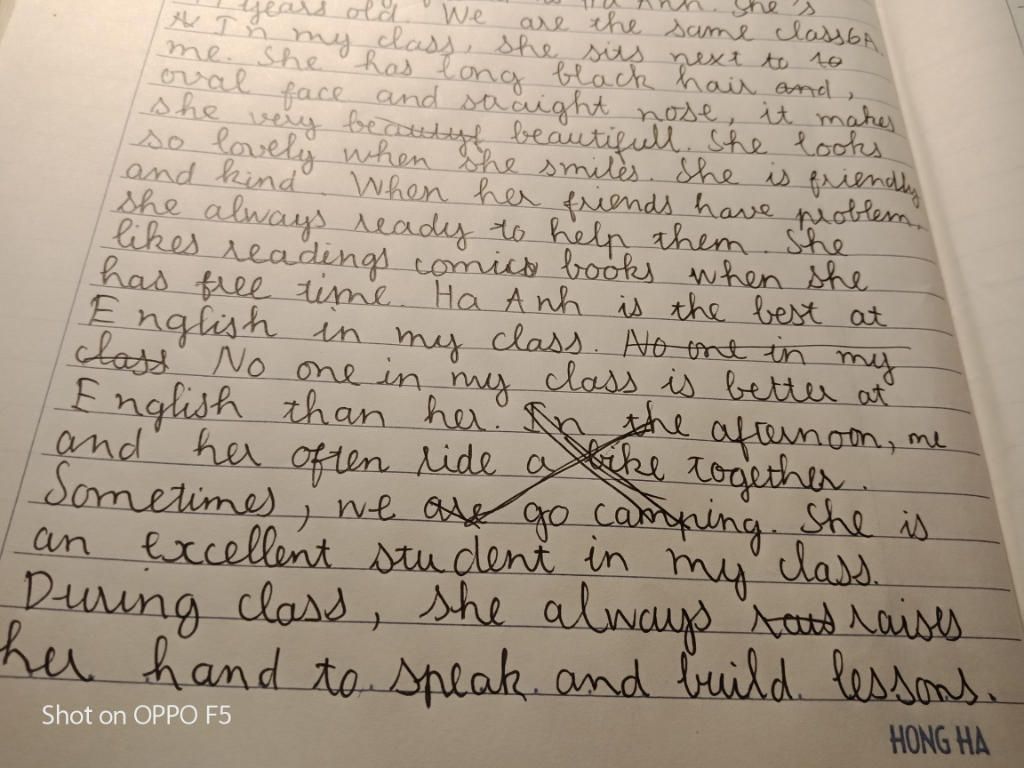 years old. We are the same class 6A
In my class, she sits next to to
me. She has long black hair and,
oval face and straight nose, it makes
she very beautyf beautifull. She looks
so lovely when she smiles. She is friendly
and kind. When her friends have problem,
she always ready to help them. She
likes readings comics books when she
has free time. Ha Anh is the best at
English in my class. No one in my
class No one in my class is better at
English than her. In the afternoon, me
and her often ride a bike together.
Sometimes, we are go camping. She is
an excellent student in my class.
During class, she always rais raises
her hand to speak and build lessons.
Shot on OPPO F5
HONG HA